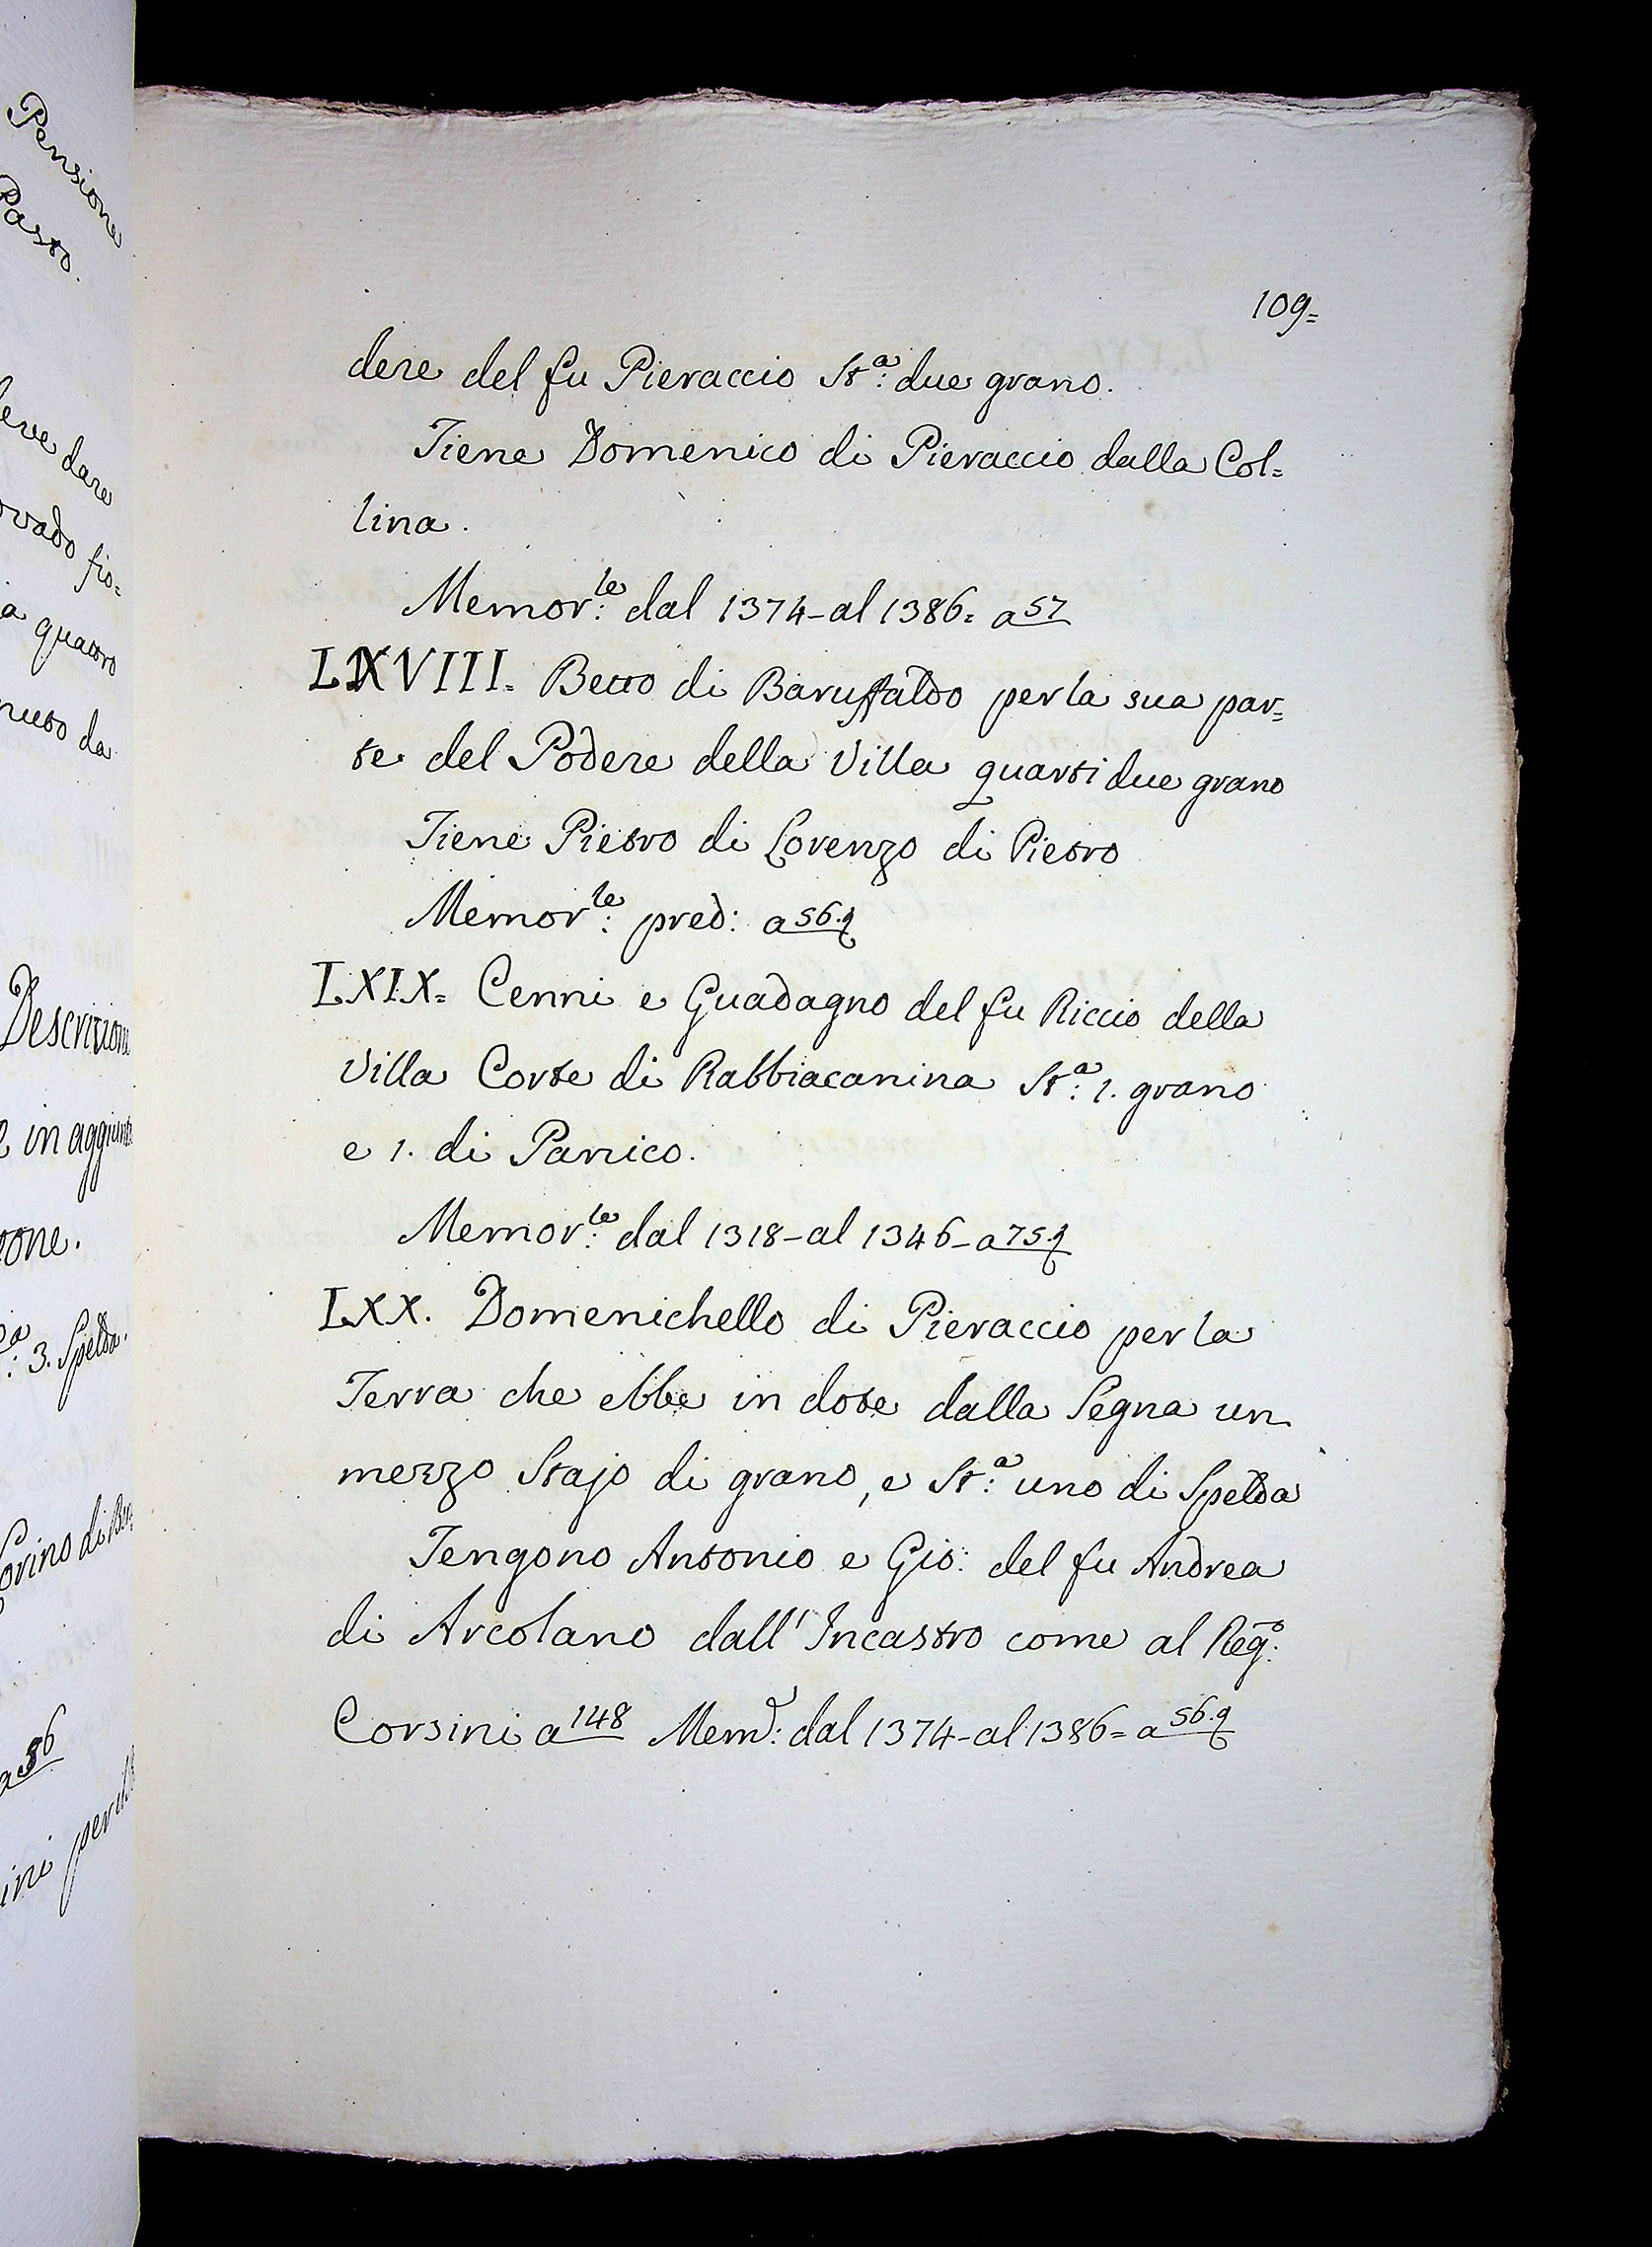 Pensione
Pasto.
deve dare
ovado fio=
a quattro
nuto da
Descrizione
e in aggiunta
one.
3. Spelda.
orino di
a 36
ini per
109=
dere del fu Pieraccio St.ª due grano.
Tiene Domenico di Pieraccio dalla Col=
lina.
Memor.le dal 1374-al 1386= a 57
LXVIII. Betto di Baruffaldo per la sua par=
te del Podere della Villa quarti due grano
Tiene Pietro di Lorenzo di Pietro
Memor.le pred: a 56.q
LXIX= Cenni e Guadagno del fu Riccio della
Villa Corte di Rabbiacanina St.ª 1. grano
e 1. di Panico.
Memor.le dal 1318-al 1346-a 75.q
LXX. Domenichello di Pieraccio per la
Terra che ebbe in dote dalla Segna un
mezzo Stajo di grano, e St.ª uno di Spelda
Tengono Antonio e Gio: del fu Andrea
di Arcolano dall'Incastro come al Reg.º
Corsini a 148 Mem.: dal 1374-al 1386= a 56.q